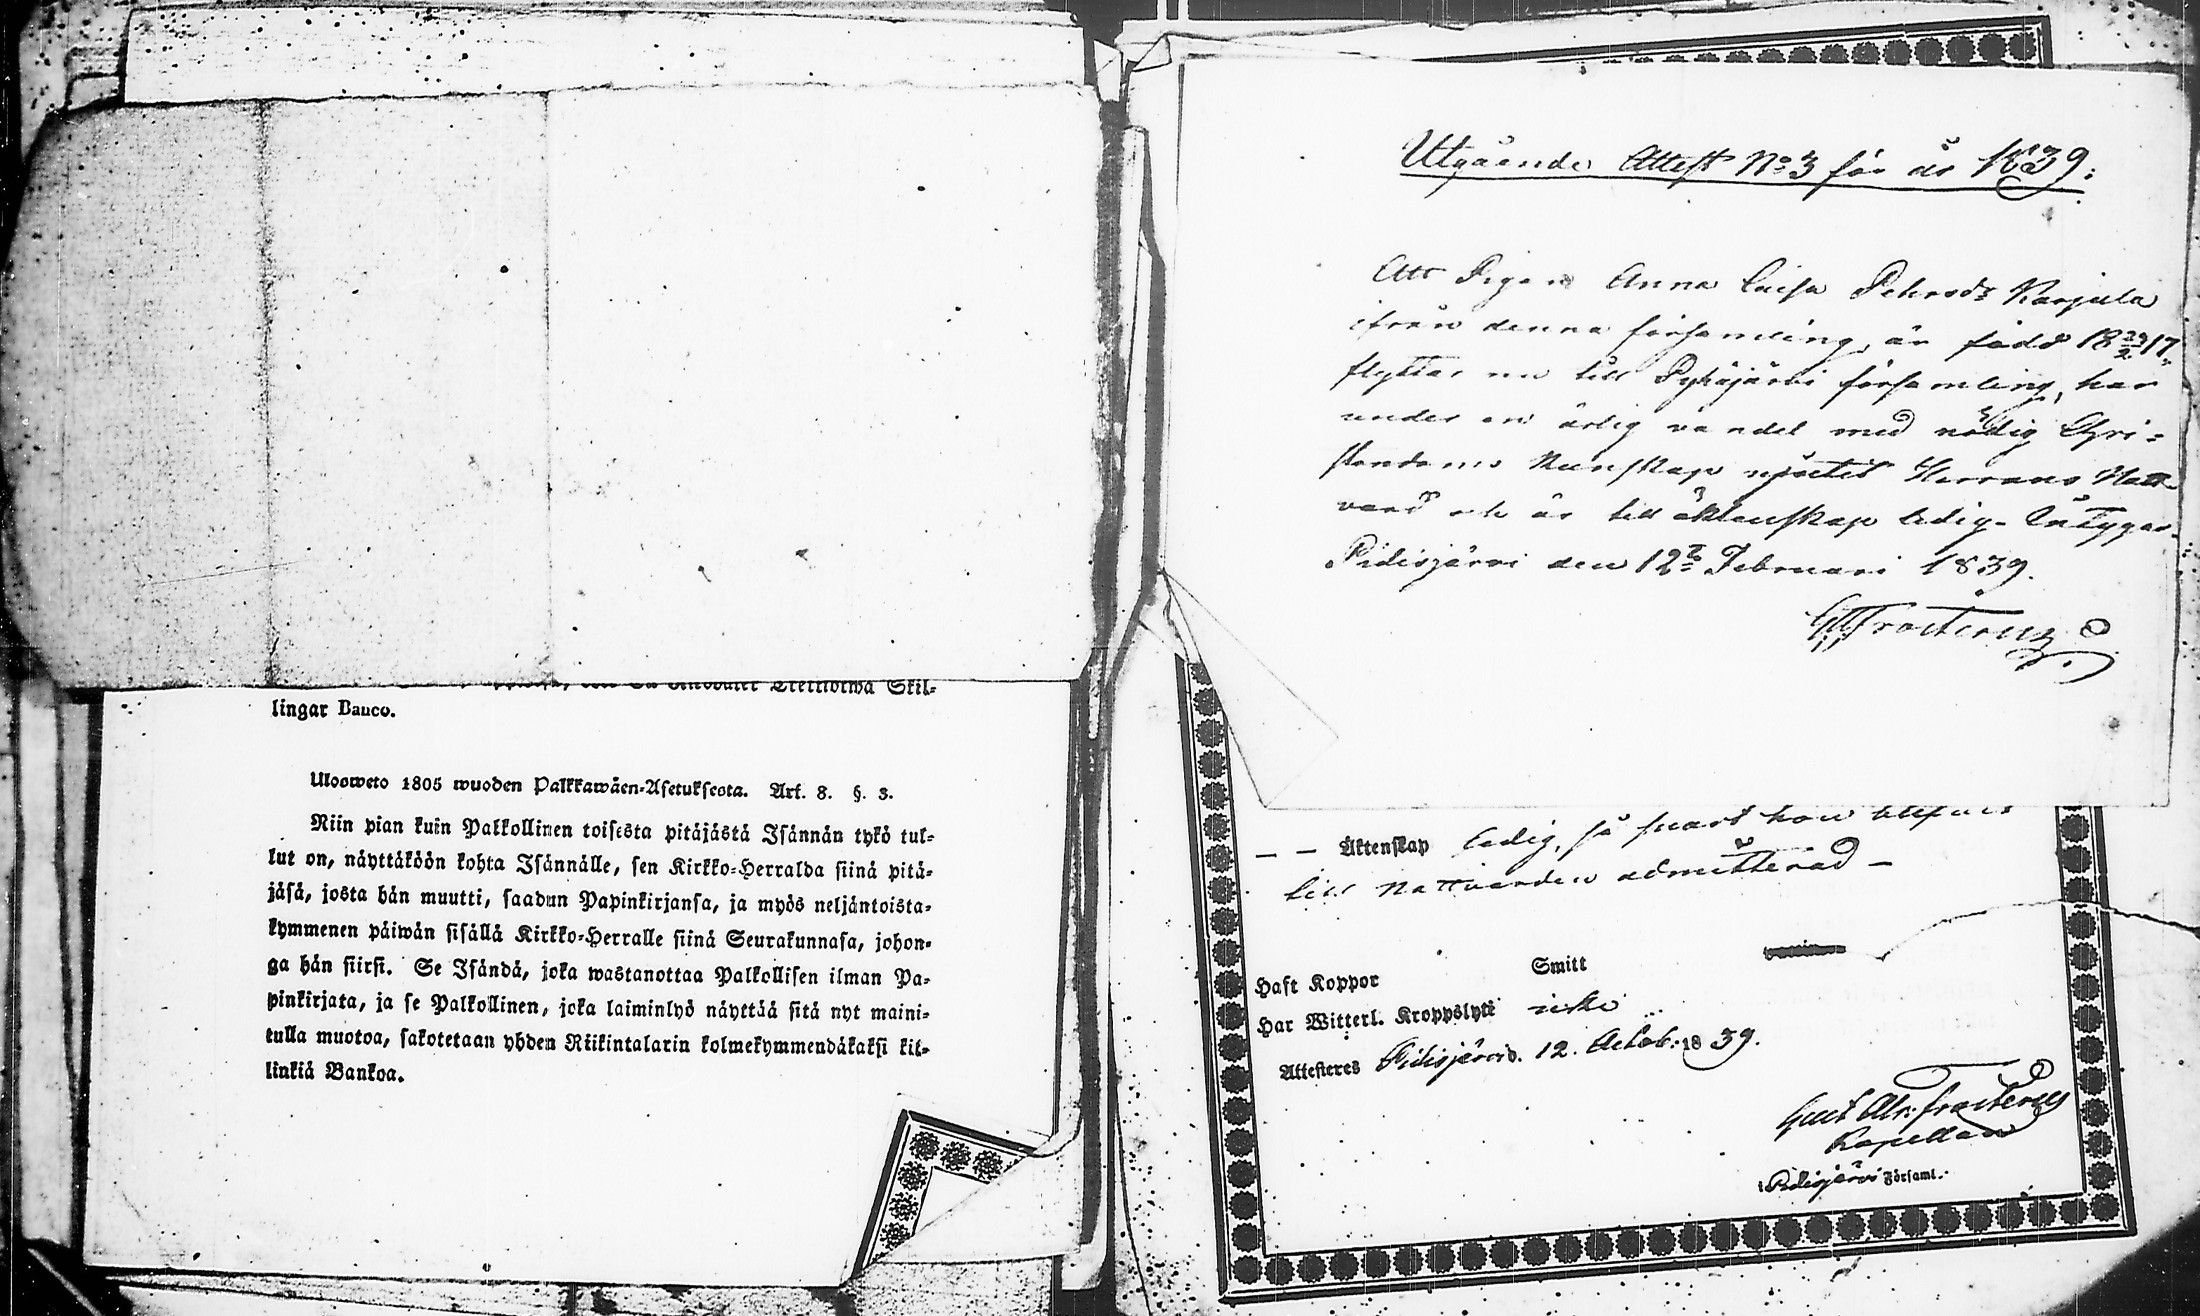 Skil-
lingar Banco.
Ulosweto 1805 wuoden Palkkawäen-Asetuksesta. Art. 8. §. 3.
Niin pian kuin Palkollinen toisesta pitäjästä Isännän tykö tul-
lut on, näyttäköön kohta Isännälle, sen Kirkko-Herralda siinä pitä-
jäsä, josta hän muutti, saadun Papinkirjansa, ja myös neljäntoista-
kymmenen päiwän sisällä Kirkko-Herralle siinä Seurakunnasa, johon-
ga hän siirsi. Se Isändä, joka wastanottaa Palkollisen ilman Pa-
pinkirjata, ja se Palkollinen, joka laiminlyö näyttää sitä nyt maini-
tulla muotoa, sakotetaan yhden Riikintalarin kolmekymmendäkaksi kil-
linkiä Bankoa.
Utgående Attest No 3 för år 1839:
Att Pigan Anna Caisa Pehrsdr Karjula
ifrån denna församling, är född 18 29/2 17,
flyttar nu till Pyhäjärvi församling, har
under en ärlig vandel med nödig Chri-
stendoms Kunskap njutit Herrans Natt-
vard och är till äktenskap ledig. Intygar
Pidisjärvi den 12te Februari 1839.
G A Frosterus
— — Äktenskap ledig, så snart hon blifvit
till Nattvarden admitterad —
Haft Koppor Smitt
Har Witterl. Kroppslyte icke
Attesteres Pidisjärvi d. 12. Octob. 1839.
Gust. Alr. Frosterus
Kapellan
i Pidisjärvi Församl.